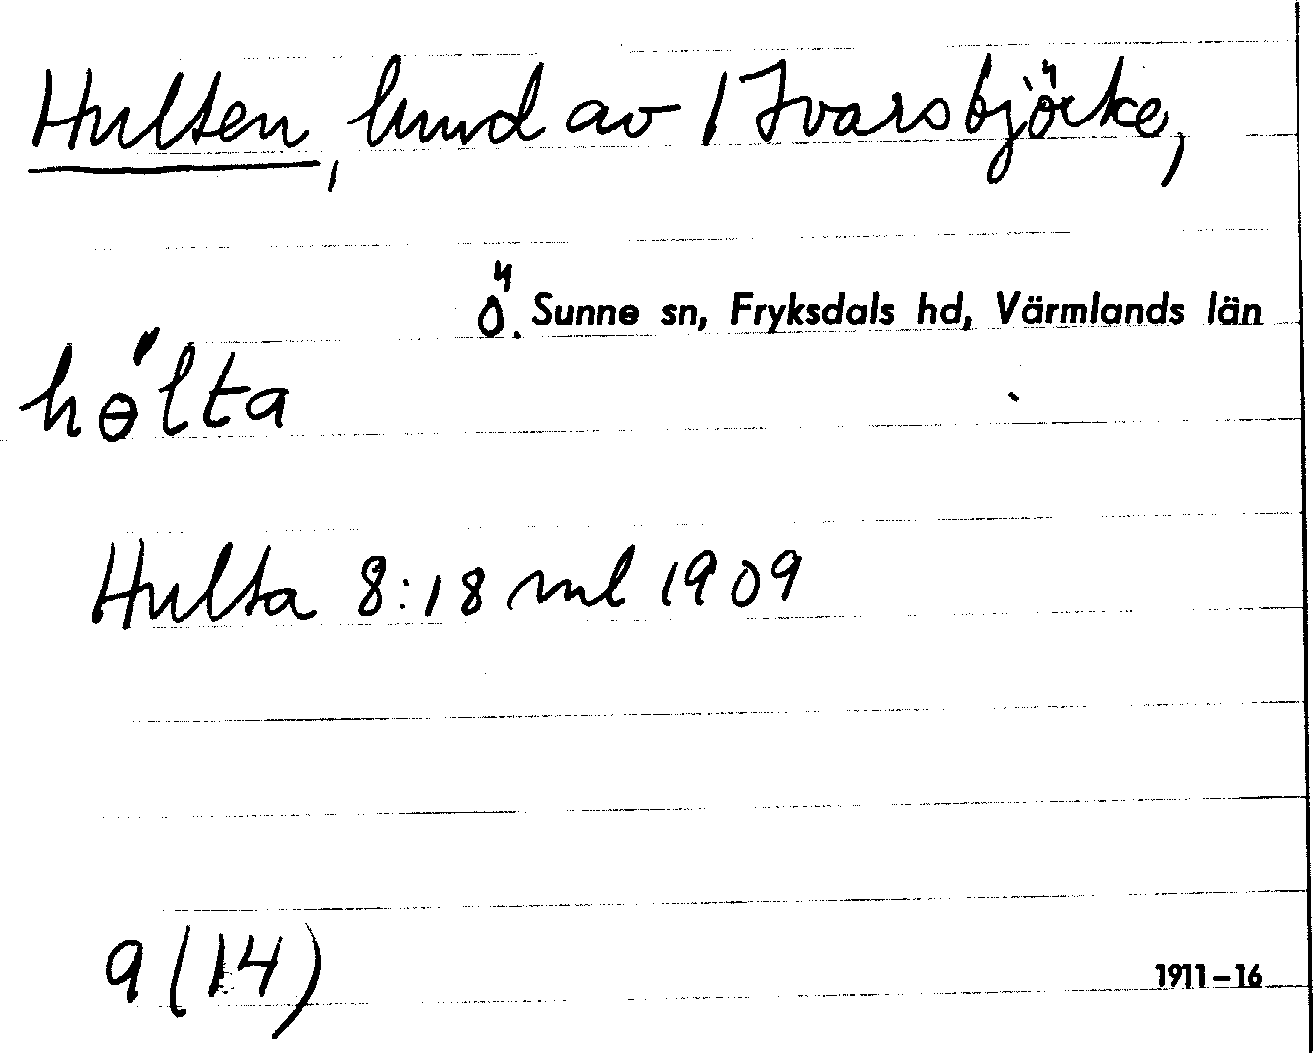 Hulten, lund av 1 Ivarsbjörke,
Ö. Sunne sn, Fryksdals hd, Värmlands län
hɵ́lta
Hulta 8:18 ml 1909
9 (14)
1911–16